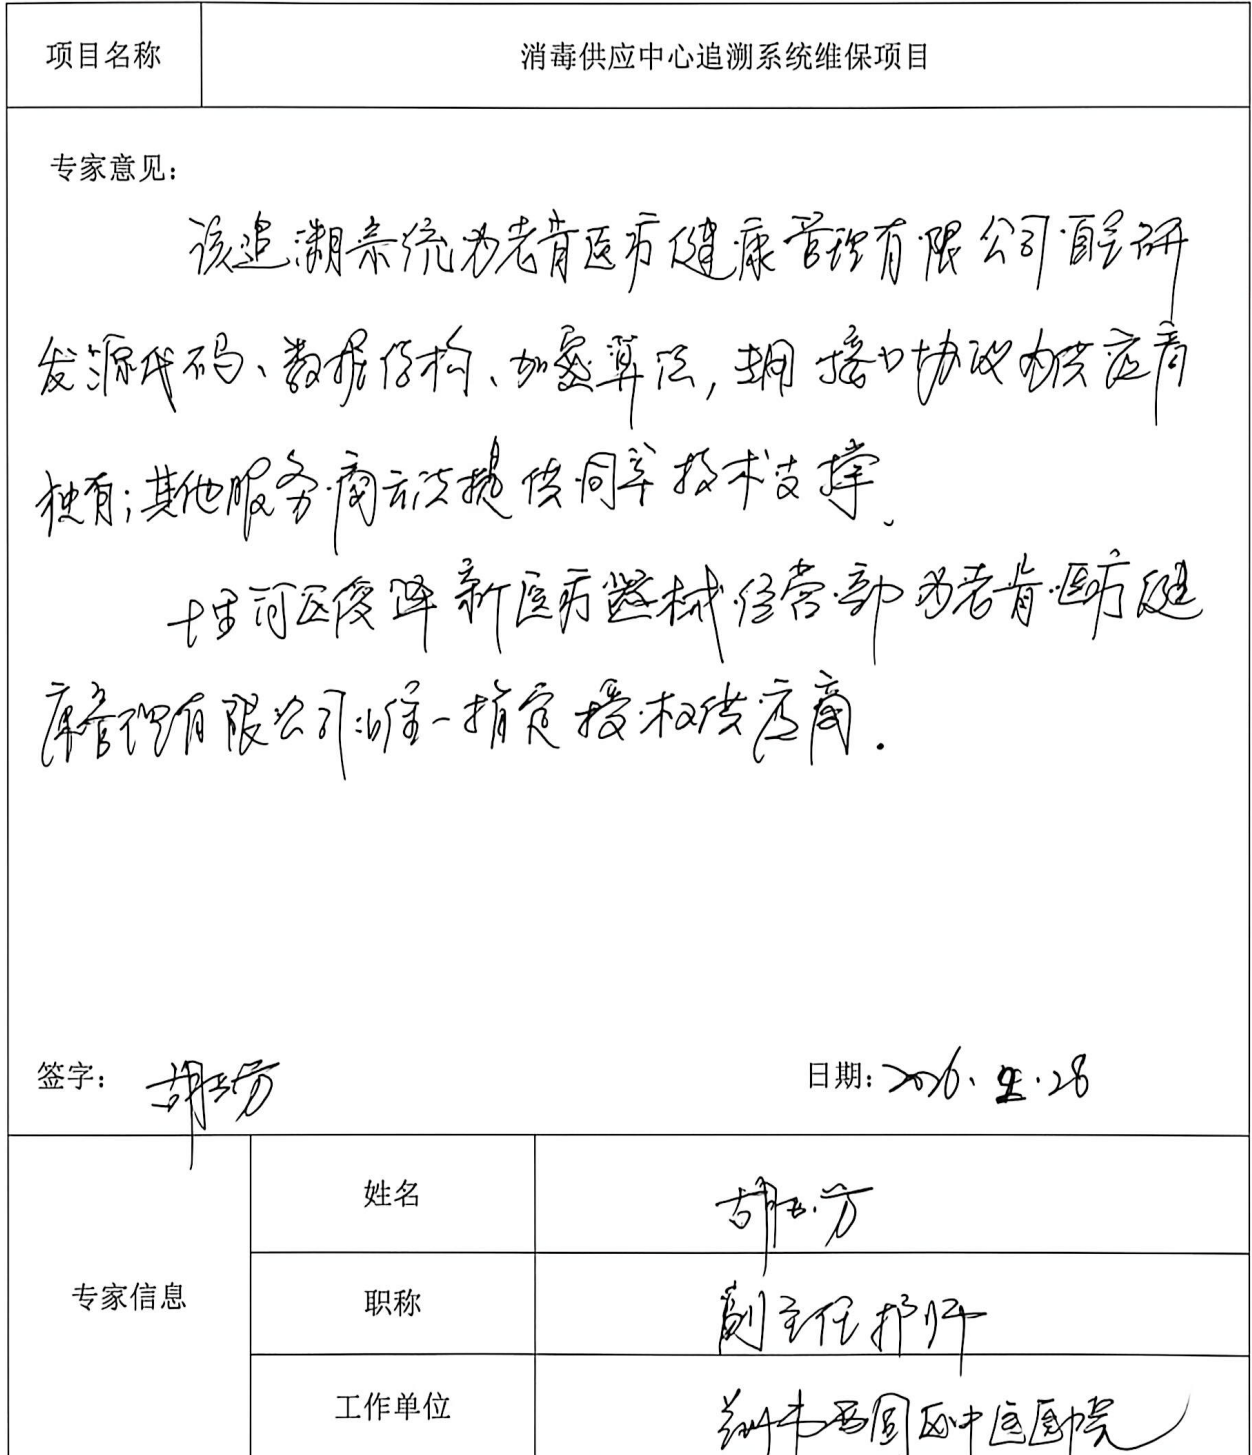 项目名称 消毒供应中心追溯系统维保项目
专家意见：
该追溯系统为老肯医疗健康管理有限公司自主研
发源代码、数据结构、加密算法，接口协议为供应商
独有；其他服务商无法提供同等技术支撑、
河区俊 新医疗器械经营部为老肯医疗健
康管理有限公司唯一指定授权供应商.
签字： 胡玉芳 日期：2026. .28
专家信息 姓名 胡玉芳
职称 副主任护师
工作单位 区中医医院